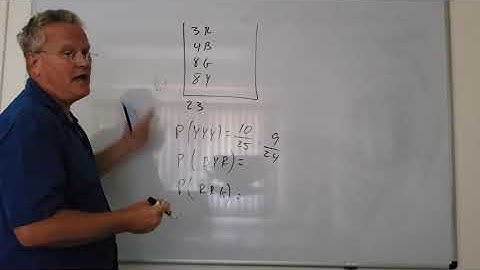 3R
4B
8G
8Y
23
P(YYY) = 10/25 9/24
P( RYR) =
P( RRG) =